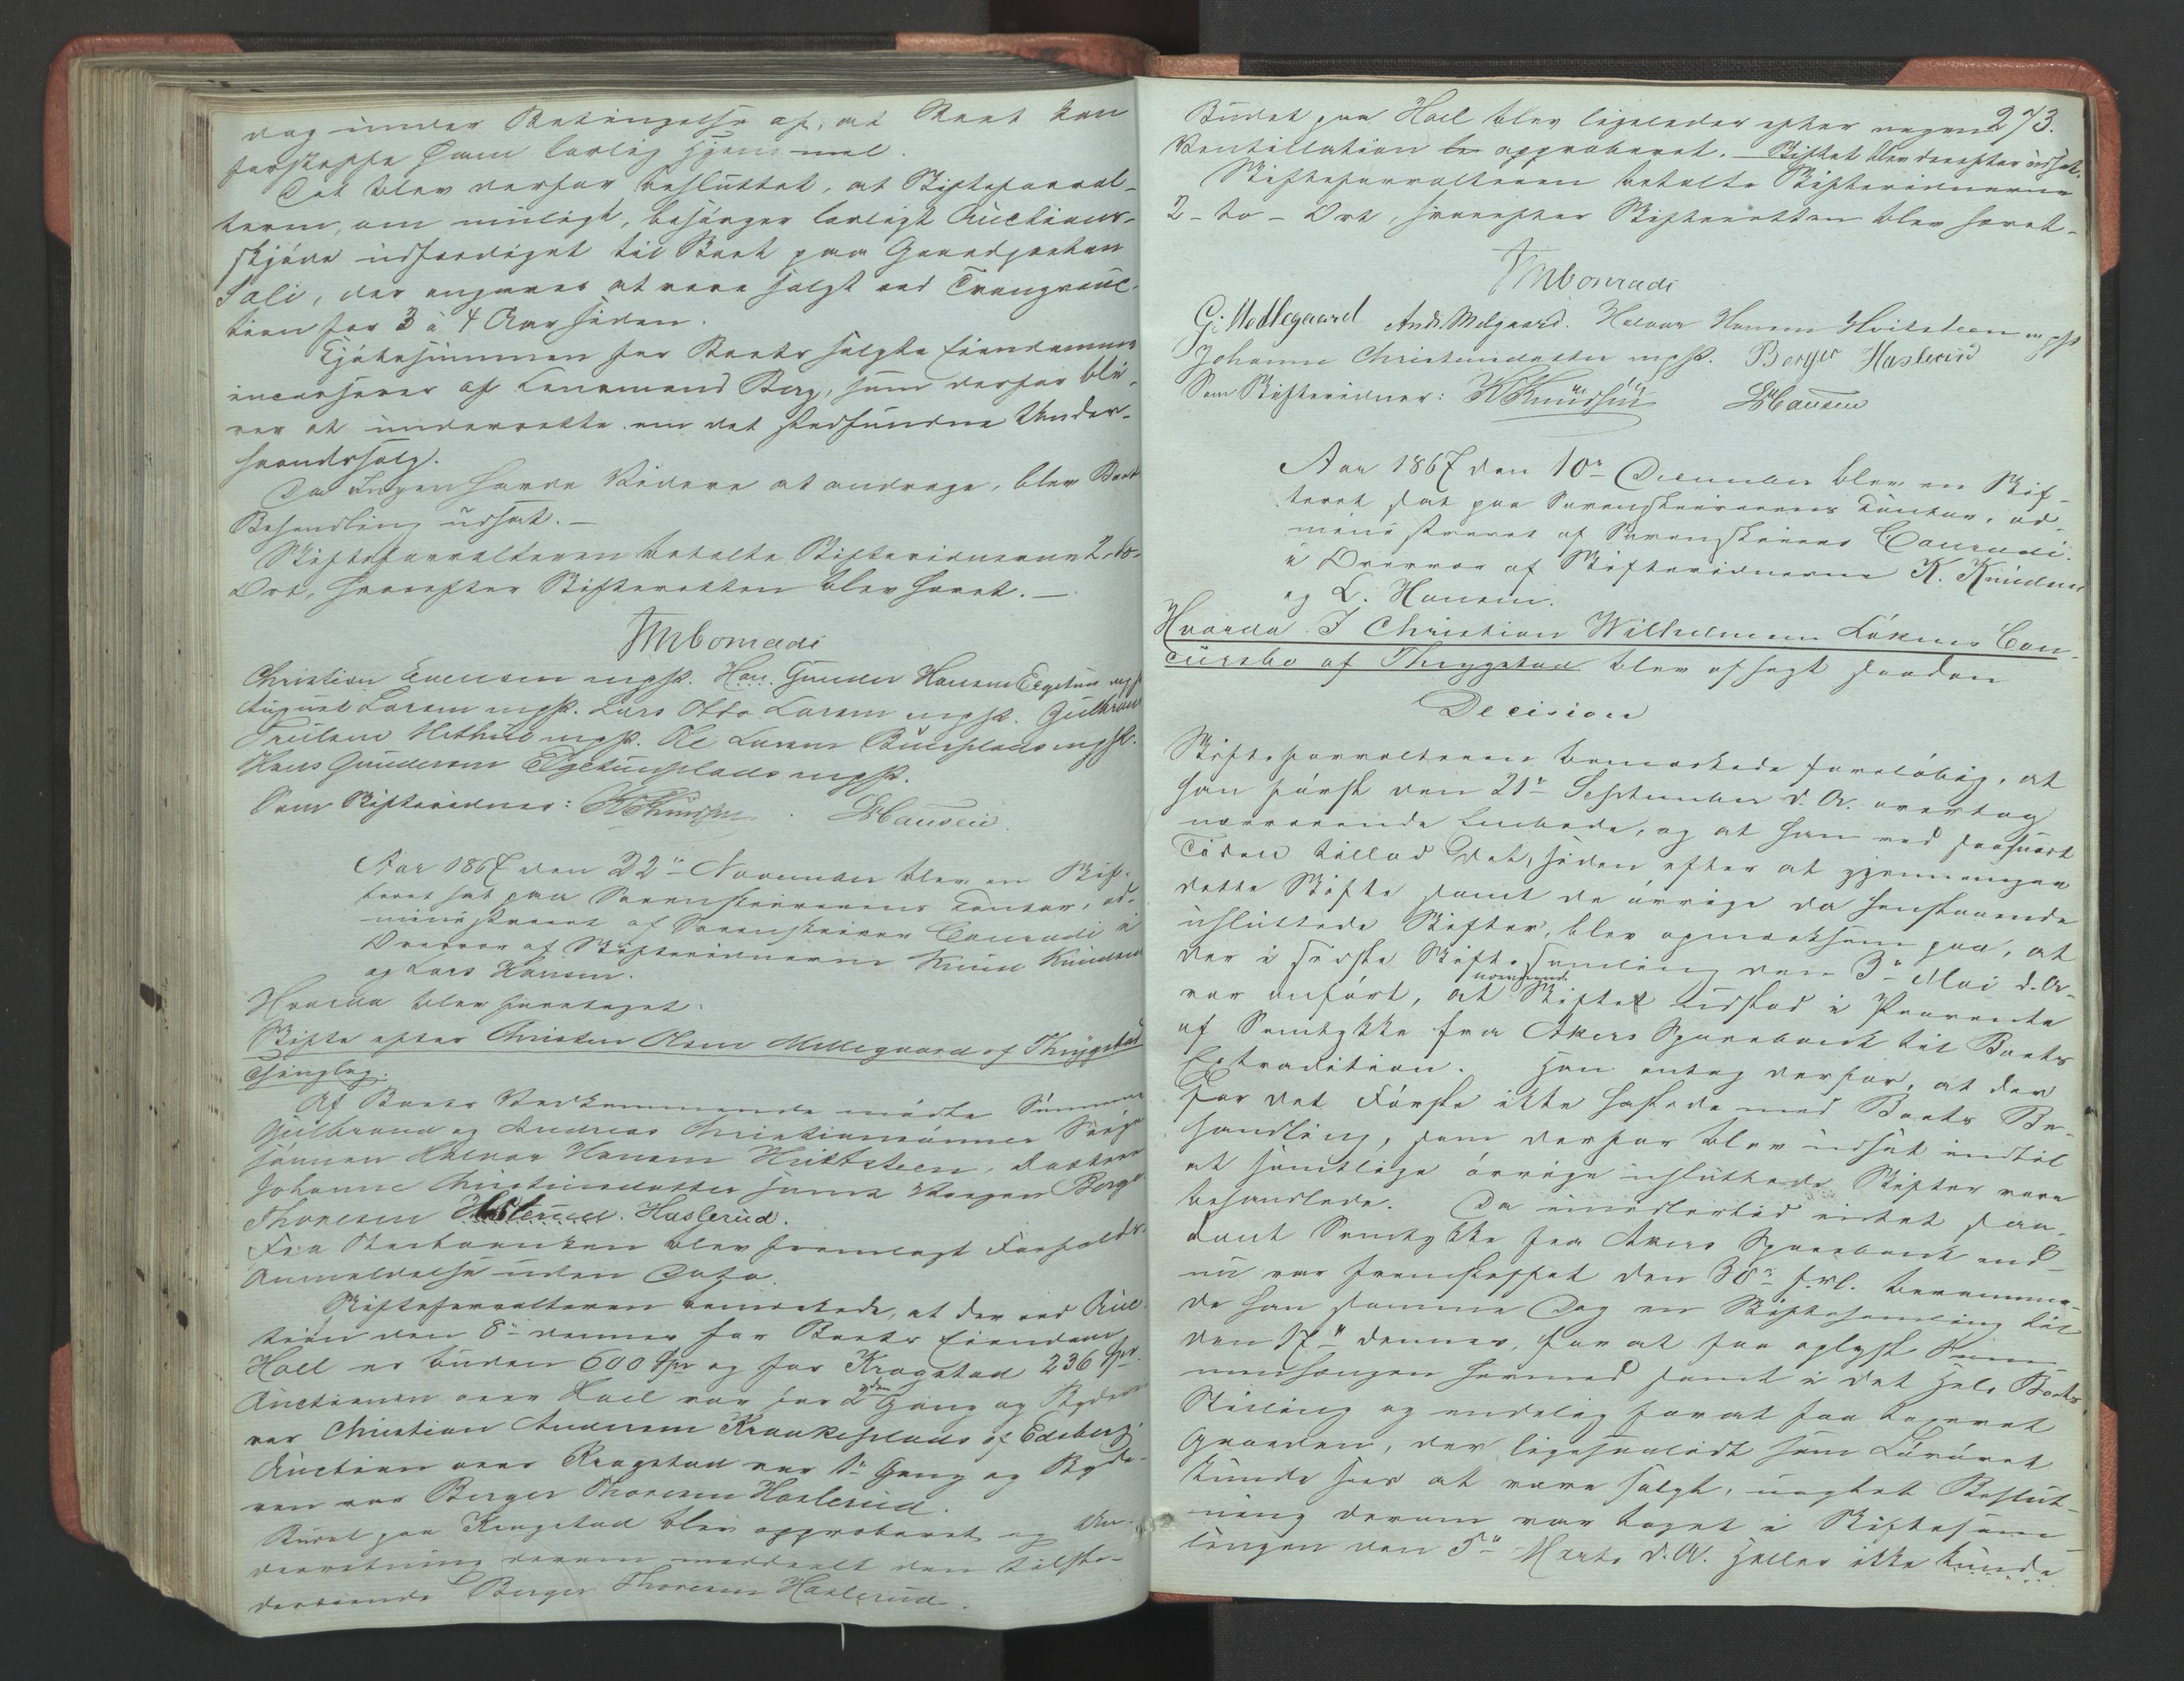 dag under Betingelse af, at Boet kan
forskaffe ham lovlig Hjemmel.
Det blev derfor besluttet, at Skifteforval-
teren, om muligt, besørger lovligt Auctions-
skjøde udfærdiget til Boet paa Gaardparten
Sali, der angaves at være solgt ved Tvangsauc-
tion for 3 à 4 Aar siden.
Kjøbesummen for Boets solgte Eiendomme
incasseres af Lensmand Berg, som derfor bli-
ver at underrette om det stedfundne Under-
haandssalg.
Da Ingen havde Videre at andrage, blev Boets
Behandling udsat. —
Skifteforvalteren betalte Skiftevidnerne 2-to-
Ort, hvorefter Skifteretten blev hævet. —
Conradi
Christian Evensen mpP. Han. Gunder Hansen Elgetun mpP
August Larsen mpP. Lars Otto Larsen mpP. Gulbrand
Truelsen mpP. Ole Larsen mpP.
Hans Gundersen Elgetunplads mpP.
Som Skiftevidner: K Knudsen. LHansen.
Aar 1867 den 22de November blev en Skif-
teret sat paa Sorenskriverens Contor, ad-
ministreret af Sorenskriver Conradi i
Overvær af Skiftevidnerne Knud Knudsen
og Lars Hansen.
Hvorda blev foretaget:
Skifte efter Christen Olsen Mellegaard af Thrygstad
Thinglag.
Af Boets Vedkommende mødte Sønnerne
Gulbrand og Andreas Christiansønner Sviger-
sønnen Halvor Hansen Huitsteen, Datteren
Johanne Christensdatter samt Værgen Berger
Thoresen Haslerud. Haslerud.
Fra Sterboenken blev fremlagt Forfalds-
Anmeldelse uden Dato.
Skifteforvalteren bemærkede, at der ved Auc-
tion den 8de dennes for Boets Eiendom
Hoel er buden 600 Spd og for Kragstad 236 Spd.
Auctionen over Hoel var for 2den Gang og Byderen
var Christian Andersen Krankeplads af Edsberg.
Auction over Kragstad var 1ste Gang og Byde-
ren var Berger Thoresen Haslerud.
Budet paa Kragstad blev approberet og Un-
derretning derom meddeelt den tilste-
deværende Berger Thoresen Haslerud.
273.
Budet paa Hoel blev ligeledes efter nogen
Ventillation be approberet. — Skiftet blev derefter udsat.
Skifteforvalteren betalte Skiftevidnerne
2-to-Ort, hvorefter Skifteretten blev hævet.
Conradi
G. Mellegaard Andr. Melgaard. Halvor Hansen Hvitsteen mpP
Johanne Christensdatter mpP. Berger Haslerud
Som Skiftevidner: K Knudsen LHansen
Aar 1867 den 10de December blev en Skif-
teret sat paa Sorenskriverens Contor, ad-
ministreret af Sorenskriver Conradi
i Overvær af Skiftevidnerne K. Knudsen
og L. Hansen.
Hvorda I Christian Wilhelmsen Løkens Con-
cursbo af Thrygstad blev afsagt saadan
Decision
Skifteforvalteren bemærkede foreløbig, at
han først den 21de September d. A. overtog
nærværende Embede, og at han ved saasnart
Tiden tillod det, siden efter at gjennemgaa
dette Skifte samt de øvrige da henstaaende
usluttede Skifter, blev opmærksom paa, at
der i sidste Skiftesamling den 3de Mai d. A.
var anført, at nærværende Skiftet udstod i Paavente
af Samtykke fra Akers Sparebank til Boets
Extradition. Han antog derfor, at der
for det Første ikke hastede med Boets Be-
handling, som derfor blev udsat indtil
at samtlige øvrige usluttede Skifter vare
behandlede. Da imidlertid intet saa-
dant Samtykke fra Akers Sparebank end-
nu var fremskaffet den 30de f. M. berammede
de han samme Dag en Skiftesamling til
den 17de dennes, for at faa oplyst Sam-
menhængen hermed samt i det Hele Boets
Stilling og endelig for at faa taxeret
Gaarden, der ligesaalidt som Løsøret
kunde sees at være solgt, uagtet Beslut-
ning derom var taget i Skiftesam-
lingen den 5te Marts d. A. Heller ikke kunde